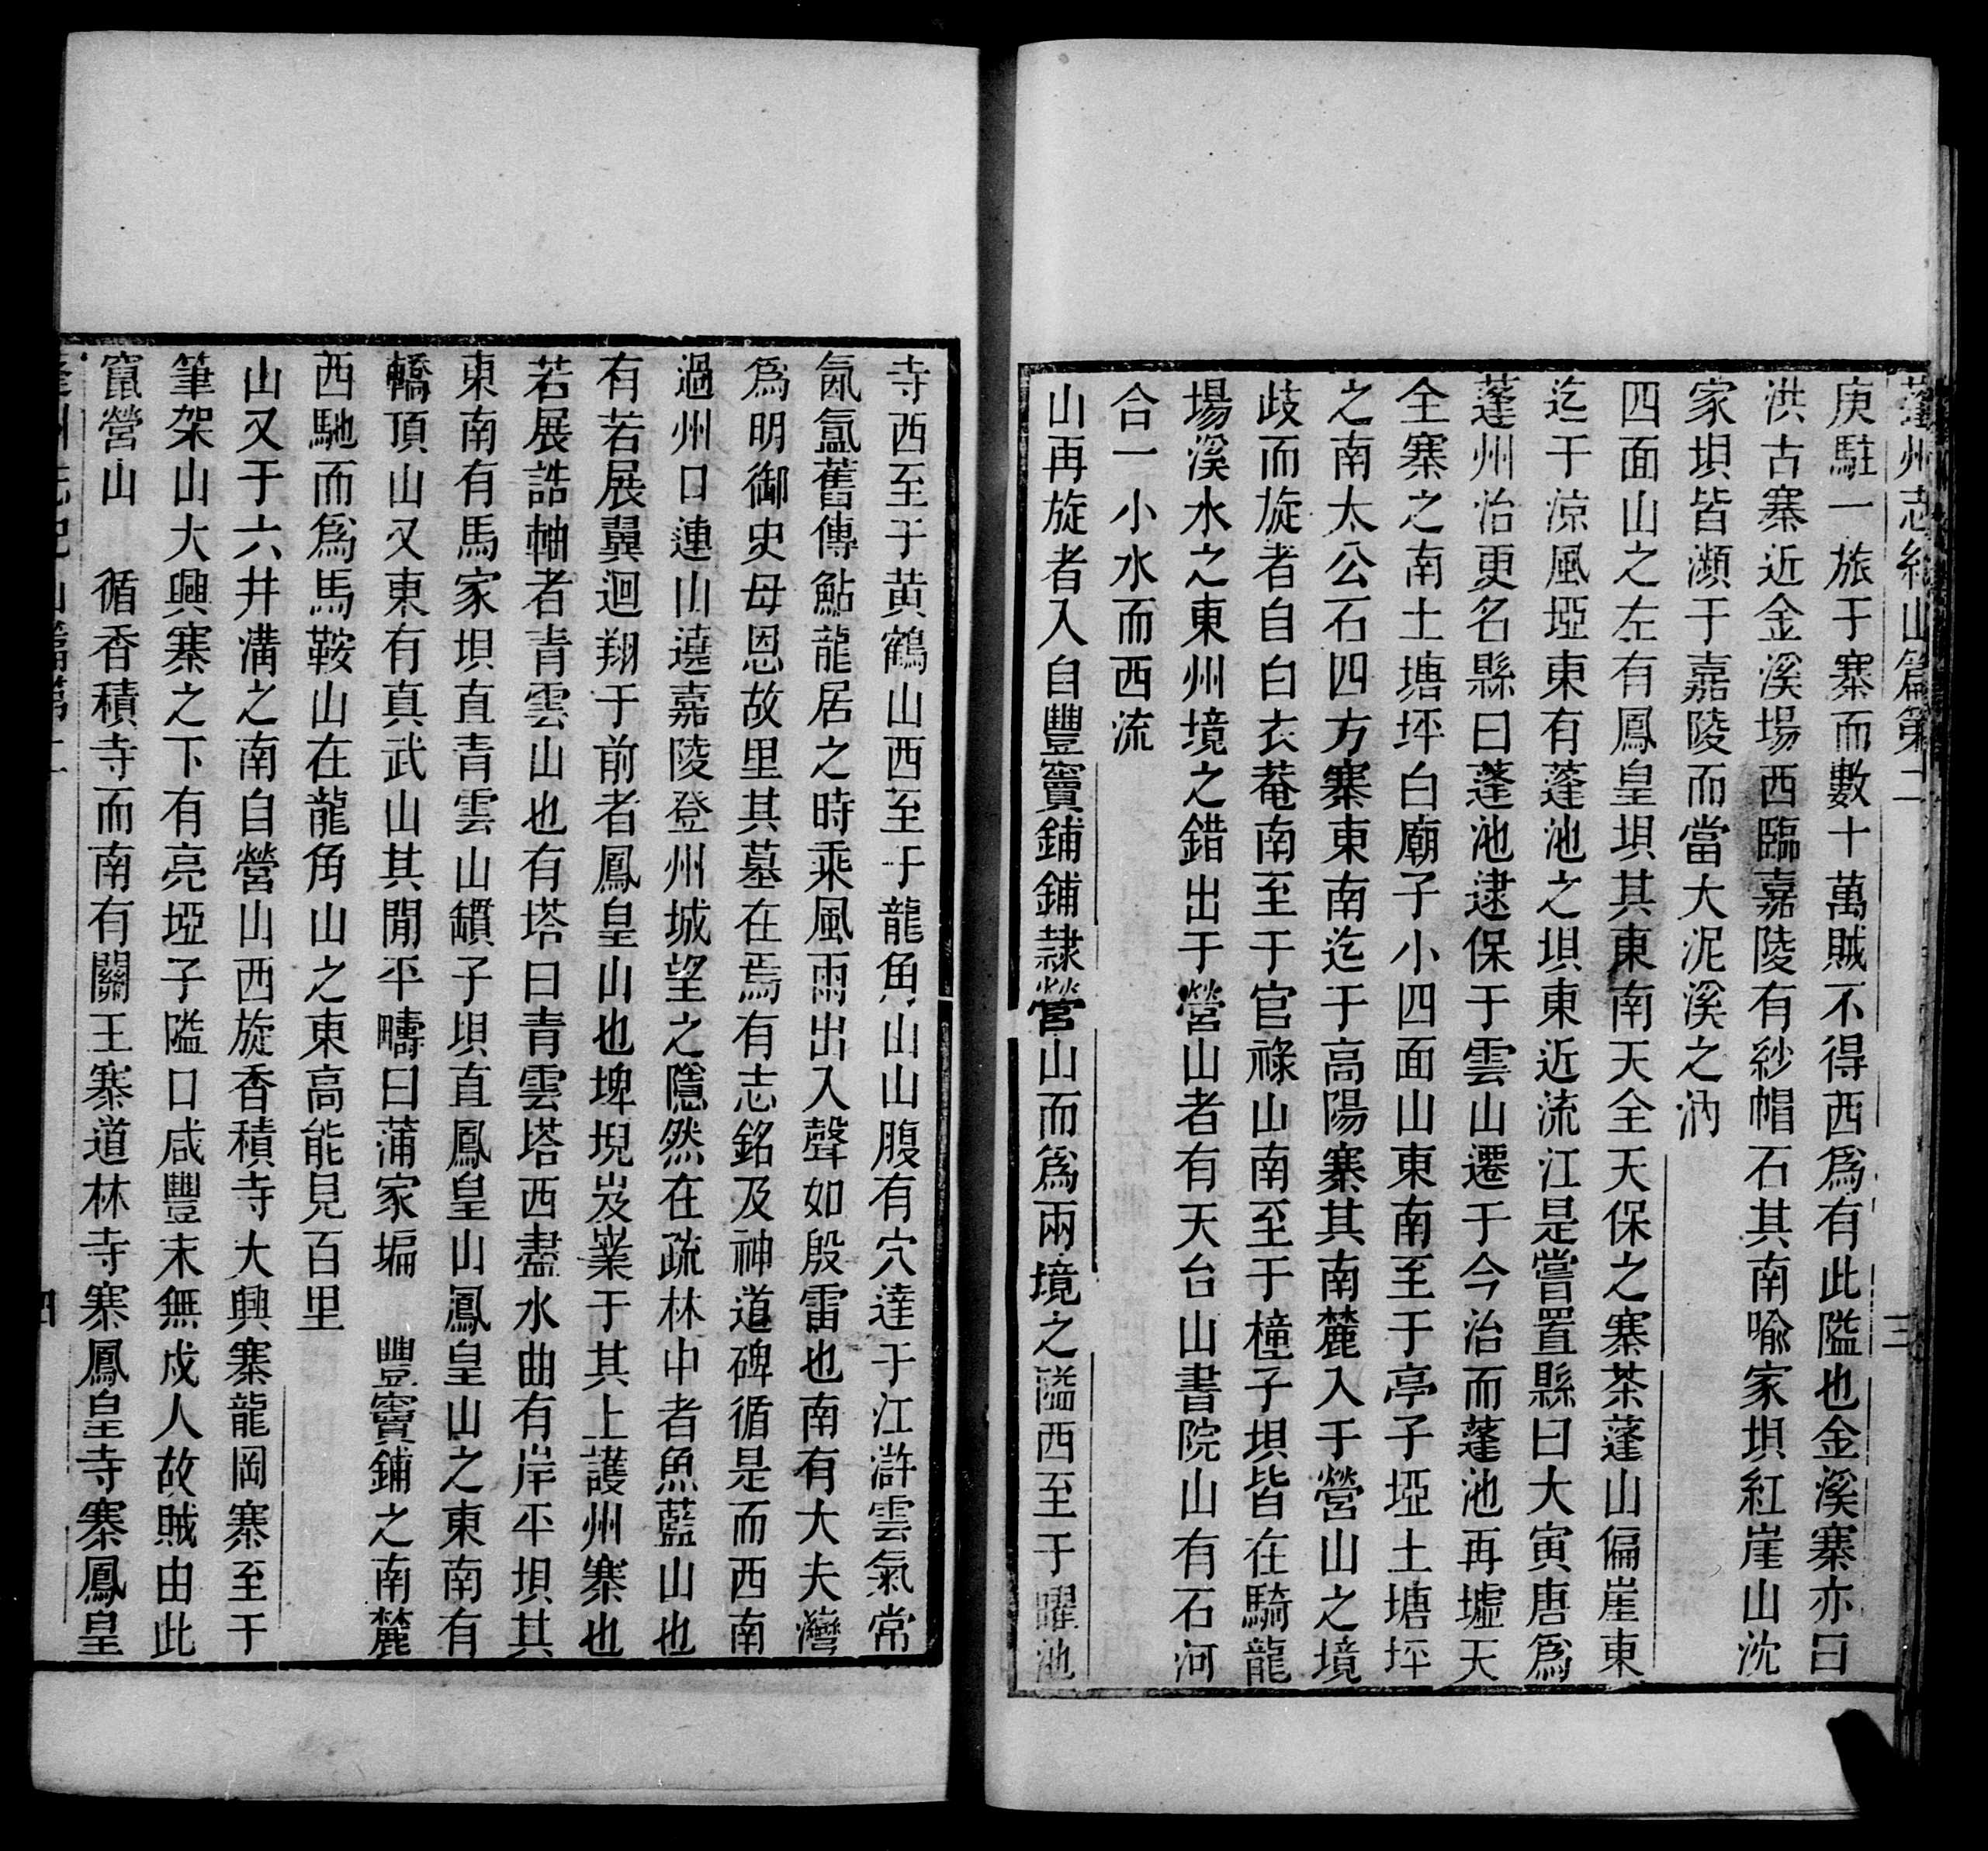 蓬州志紀山篇第二 三
庚駐一旅于寨而數十萬賊不得西爲有此隘也金溪寨亦曰
洪古寨近金溪場西臨嘉陵有紗帽石其南喻家坝紅崖山沈
家坝皆瀕于嘉陵而當大泥溪之汭
四面山之左有鳳皇坝其東南天全天保之寨茶蓬山偏崖東
迄于涼風埡東有蓬池之坝東近流江是嘗置縣曰大寅唐爲
蓬州治更名縣曰蓬池逮保于雲山遷于今治而蓬池再墟天
全寨之南土塘坪白廟子小四面山東南至于亭子埡土塘坪
之南太公石四方寨東南迄于高陽寨其南麓入于營山之境
歧而旋者自白衣菴南至于官祿山南至于橦子坝皆在騎龍
場溪水之東州境之錯出于營山者有天台山書院山有石河
合一小水而西流
山再旋者入自豐竇鋪鋪隸營山而爲兩境之隘西至于曜池
寺西至于黃鶴山西至于龍角山山腹有穴達于江滸雲氣常
氤氳舊傳鮎龍居之時乘風雨出入聲如殷雷也南有大夫灣
爲明御史母恩故里其墓在焉有志銘及神道碑循是而西南
過州口連山遶嘉陵登州城望之隱然在疏林中者魚藍山也
有若展翼迴翔于前者鳳皇山也埤堄岌嶪于其上護州寨也
若展誥軸者青雲山也有塔曰青雲塔西盡水曲有岸平坝其
東南有馬家坝直青雲山鑽子坝直鳳皇山鳳皇山之東南有
轎頂山又東有真武山其閒平疇曰蒲家塥 豐竇鋪之南麓
西馳而爲馬鞍山在龍角山之東高能見百里
山又于六井溝之南自營山西旋香積寺大興寨龍岡寨至于
筆架山大興寨之下有亮埡子隘口咸豐末無戍人故賊由此
竄營山 循香積寺而南有關王寨道林寺寨鳳皇寺寨鳳皇
蓬州志紀山篇第二 四